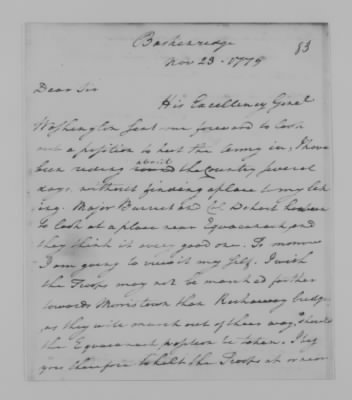 Baskenridge
Nov 23 - 1779
83
Dear Sir
His Excellency Genel
Washington sent me forward to look
out a position to hut the Army in, I have
been riding about the Country several
days, without finding a place to my lik
ing. Major Burnet and Col Dehart have been
to look at a place near Equacanack, and
they think it a very good one. To morrow
I am going to view it my self. I wish
the Troops may not be marched farther
towards Morristown than Rockaway bridge,
as they will march out of their way, should
the Equacanack position be taken. I beg
you therefore to halt the Troops at or near